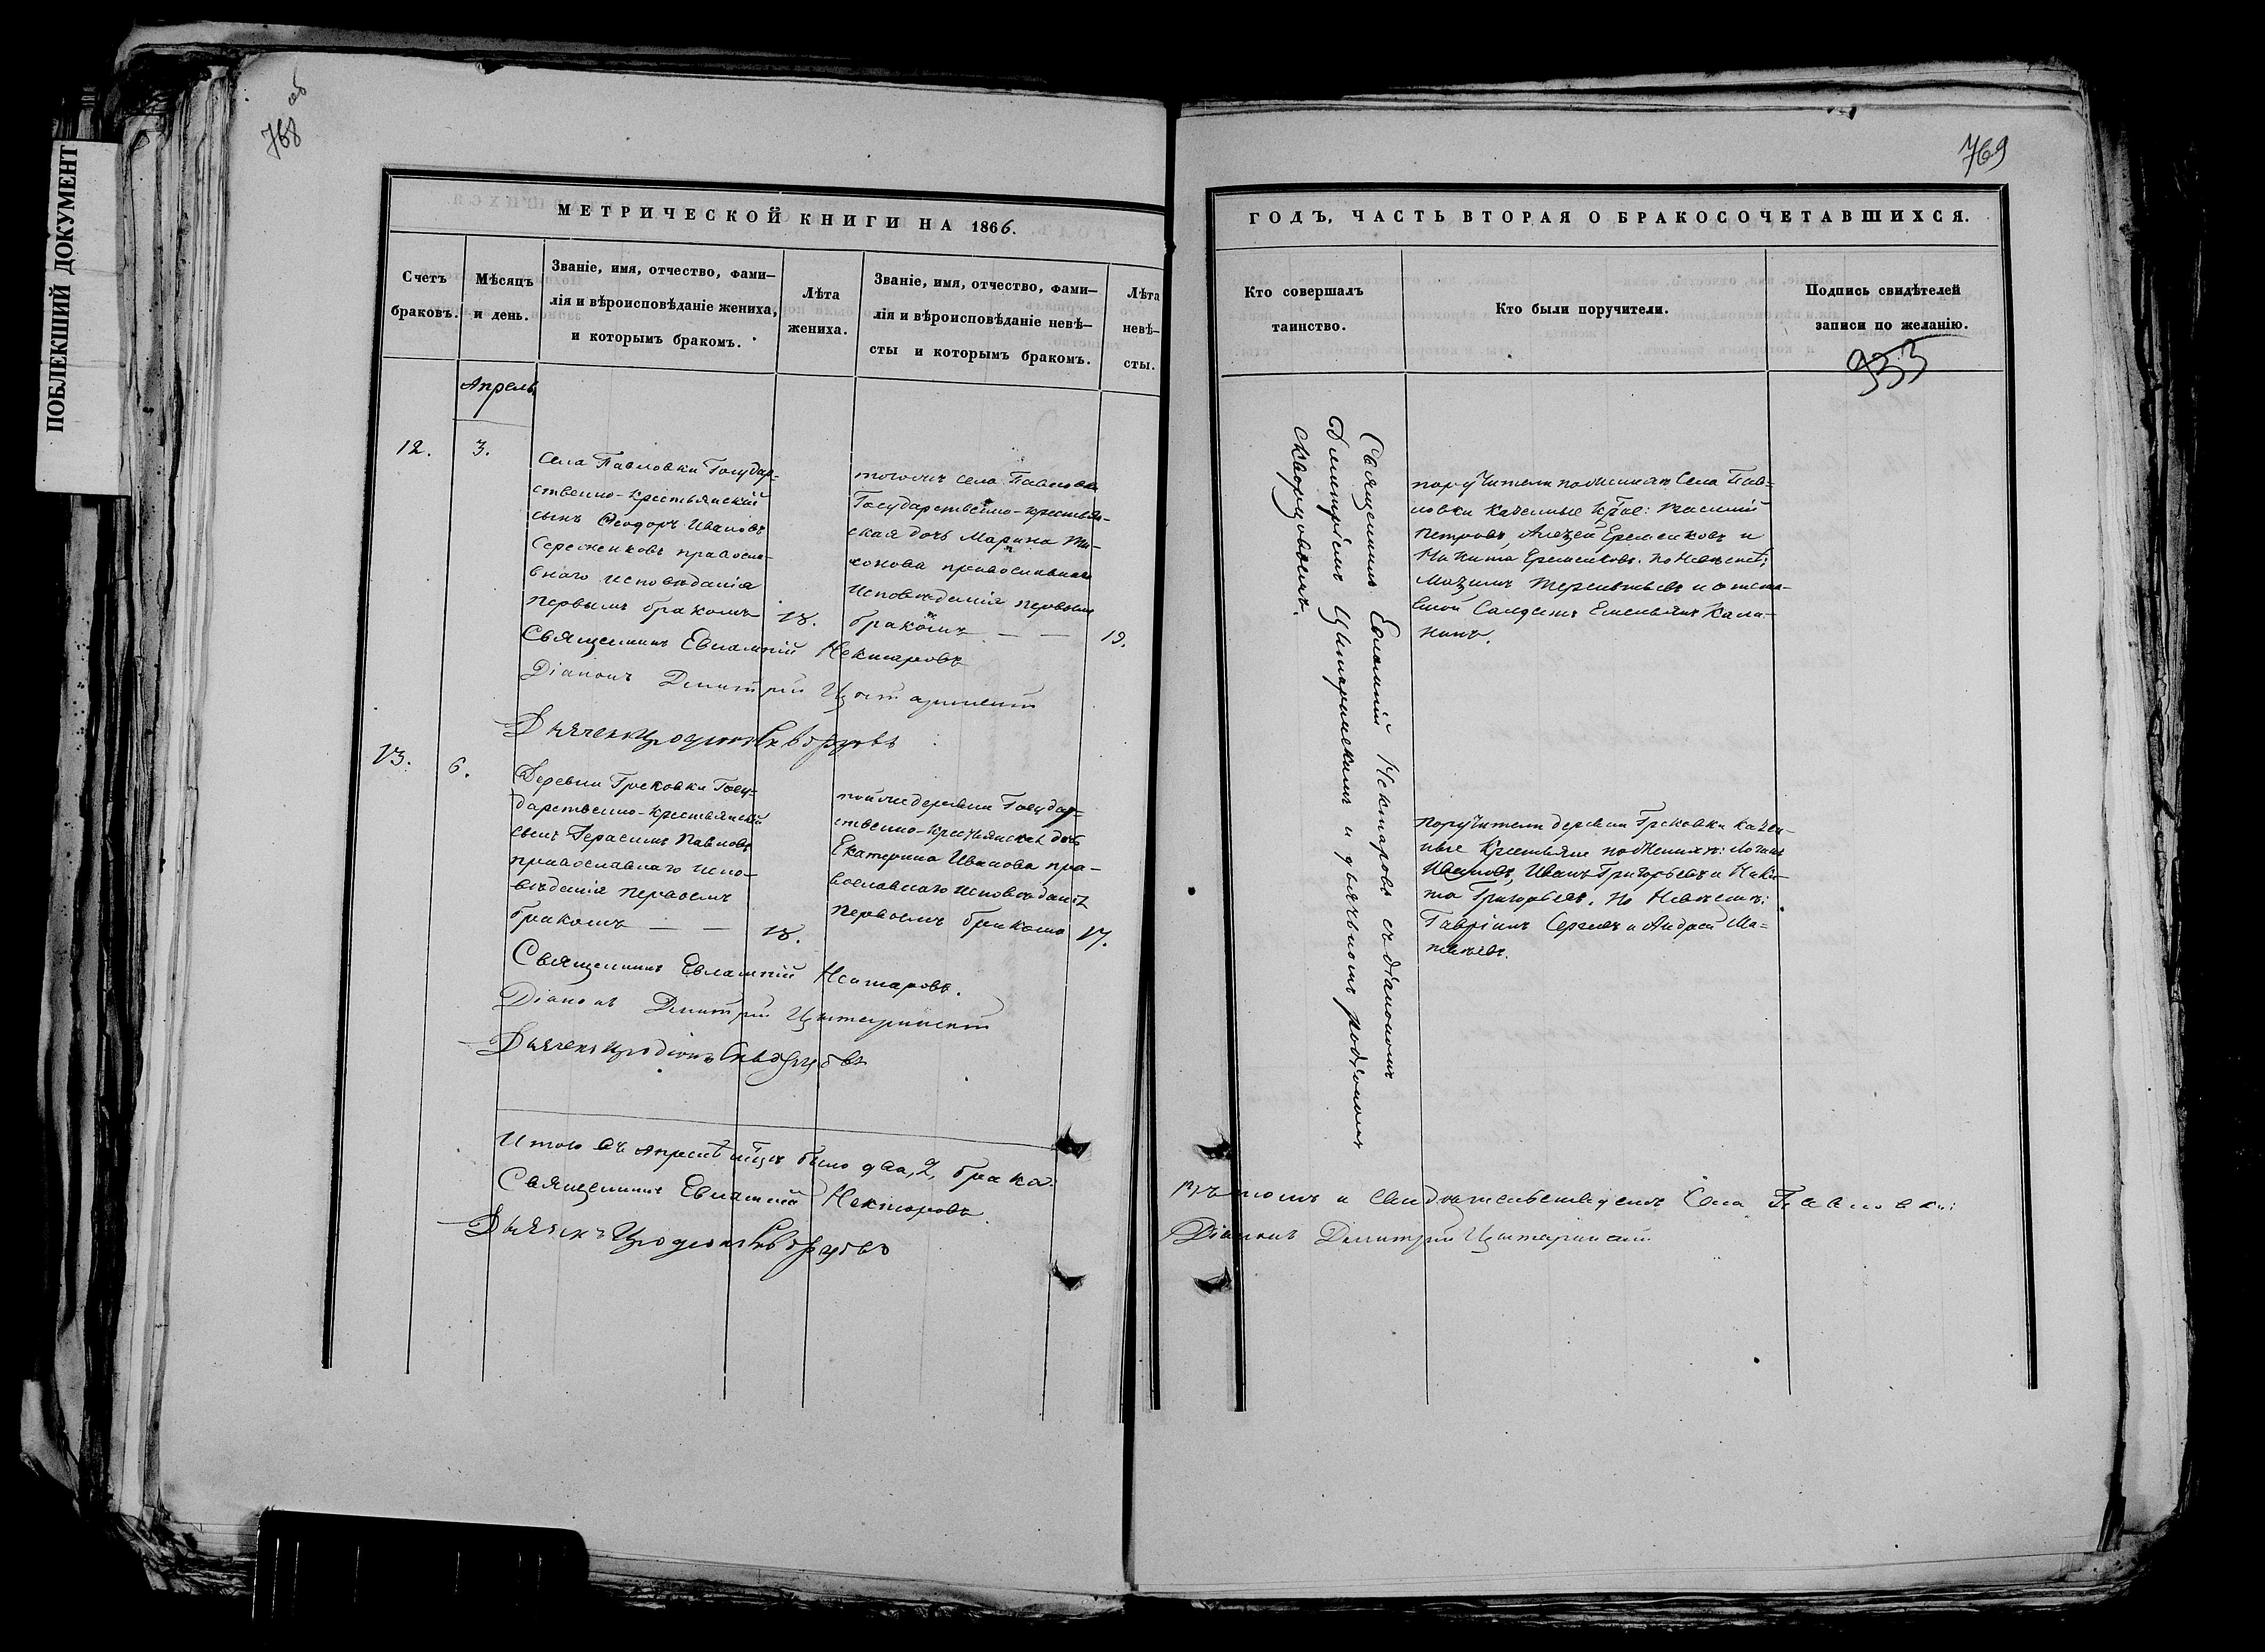 ПОБЛЕКШИЙ ДОКУМЕНТ
768 об
МЕТРИЧЕСКОЙ КНИГИ НА 1866.
Счетъ браковъ.
Мѣсяцъ и день.
Званіе, имя, отчество, фами-
лія и вѣроисповѣданіе жениха,
и которымъ бракомъ.
Лѣта
жениха.
Званіе, имя, отчество, фами-
лія и вѣроисповѣданіе невѣ-
сты и которымъ бракомъ.
Лѣта
невѣ-
сты.
Апрель
12.
3.
Села Павловки Государ-
ственно-крестьянскій
сынъ Ѳеодоръ Ивановъ
православ-
внаго исповѣданія
первымъ бракомъ
18.
тогожъ села Павловки
Государственно-крестьян-
ская дочь Марина Ти-
хонова православнаго
исповѣданія первымъ
бракомъ — —
19.
Священникъ Евлампій Нектаровъ
Діаконъ Димитрій
Дьячекъ Иродіонъ Скворцовъ
13.
6.
Деревни Грековки Госу-
дарственно-крестьянскій
сынъ Герасимъ Павловъ
православнаго испо-
вѣданія первымъ
бракомъ — —
18.
тойже деревни Государ-
ственно-крестьянская дочь
Екатерина Иванова пра-
вославнаго исповѣданія
первымъ бракомъ
17.
Священникъ Евлампій Нектаровъ.
Діаконъ Димитрій
Дьячекъ Иродіонъ Скворцовъ
Итого въ Апрелѣ м҃цѣ было два, 2, брака.
Священникъ Евлампій Нектаровъ.
Дьячекъ Иродіонъ Скворцовъ
769
ГОДЪ, ЧАСТЬ ВТОРАЯ О БРАКОСОЧЕТАВШИХСЯ.
Кто совершалъ
таинство.
Кто были поручители.
Подпись свидѣтелей
записи по желанію.
933
Священникъ Евлампій Нектаровъ съ діакономъ
Димитріемъ и дьячькомъ родіономъ
скворцовымъ.
поручители по женихѣ Села Пав-
ловки казенные
Петровъ, Алексѣй Еременковъ и
Никита Еременковъ. по Невѣстѣ:
Терентьевъ и отста-
вной Солдатъ Емельянъ Кали-
нинъ.
Поручители деревни Грековки казен-
ные Крестьяне по Женихѣ:
Ивановъ, Иванъ Григорьевъ и Ники-
та Григорьевъ. по Невѣстѣ:
Гавріилъ Сергѣевъ и Андрей Ма-
твѣевъ.
Въ томъ и свидѣтельствуемъ Села Павловки:
Діаконъ Димитрій